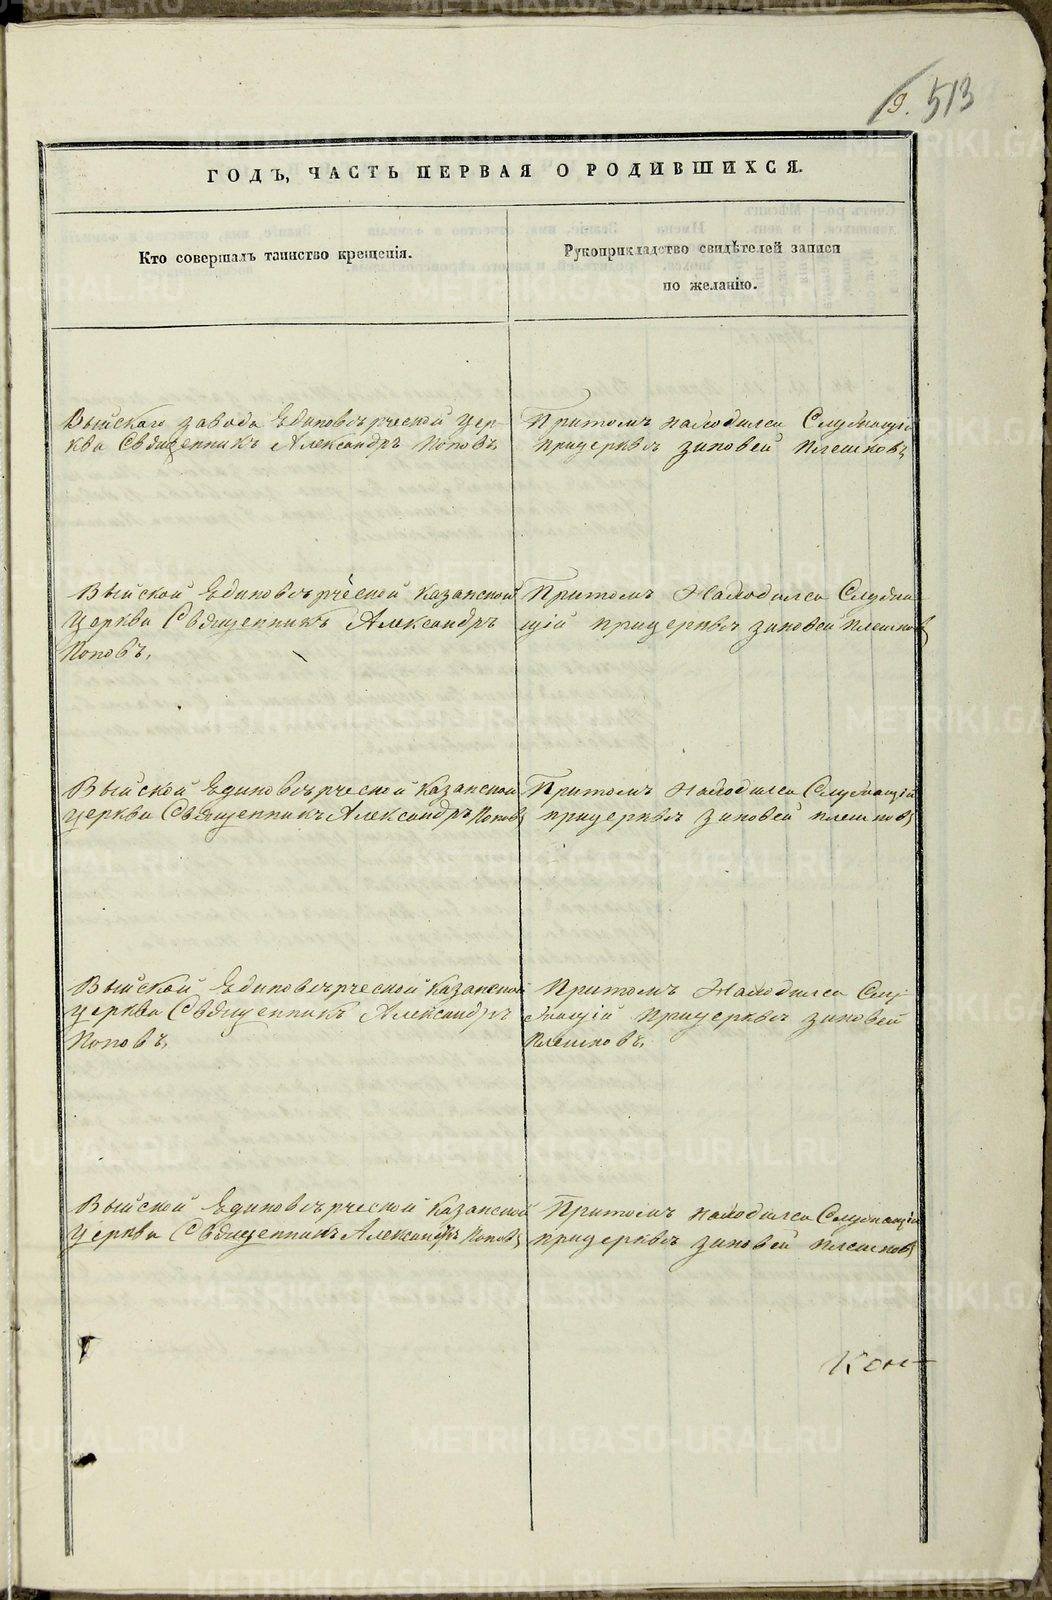 9. 513
ГОДЪ, ЧАСТЬ ПЕРВАЯ О РОДИВШИХСЯ.
Кто совершалъ таинство крещенія.
Рукоприкладство свидѣтелей записи
по желанію.
Выйскаго завода Единовѣрческой цер-
кви Священникъ Александръ Поповъ,
Притомъ находился Служащій
прицерквѣ Зиновей Плешковъ,
Выйской Единовѣрческой Казанской
церкви Священникъ Александръ
Поповъ,
Притомъ Находился Служа-
щій прицерквѣ Зиновей Плешковъ
Выйской Единовѣрческой Казанской
церкви Священникъ Александръ Поповъ
Притомъ Находился Служащій
прицерквѣ Зиновей Плешковъ
Выйской Единовѣрческой Казанской
церкви Священникъ Александръ
Поповъ,
Притомъ Находился Слу-
жащій прицерквѣ Зиновей
Плешковъ,
Выйской Единовѣрческой Казанской
церкви Священникъ Александръ Поповъ
Притомъ находился Служащій
прицерквѣ Зиновей Плешковъ
METRIKI.GASO-URAL.RU